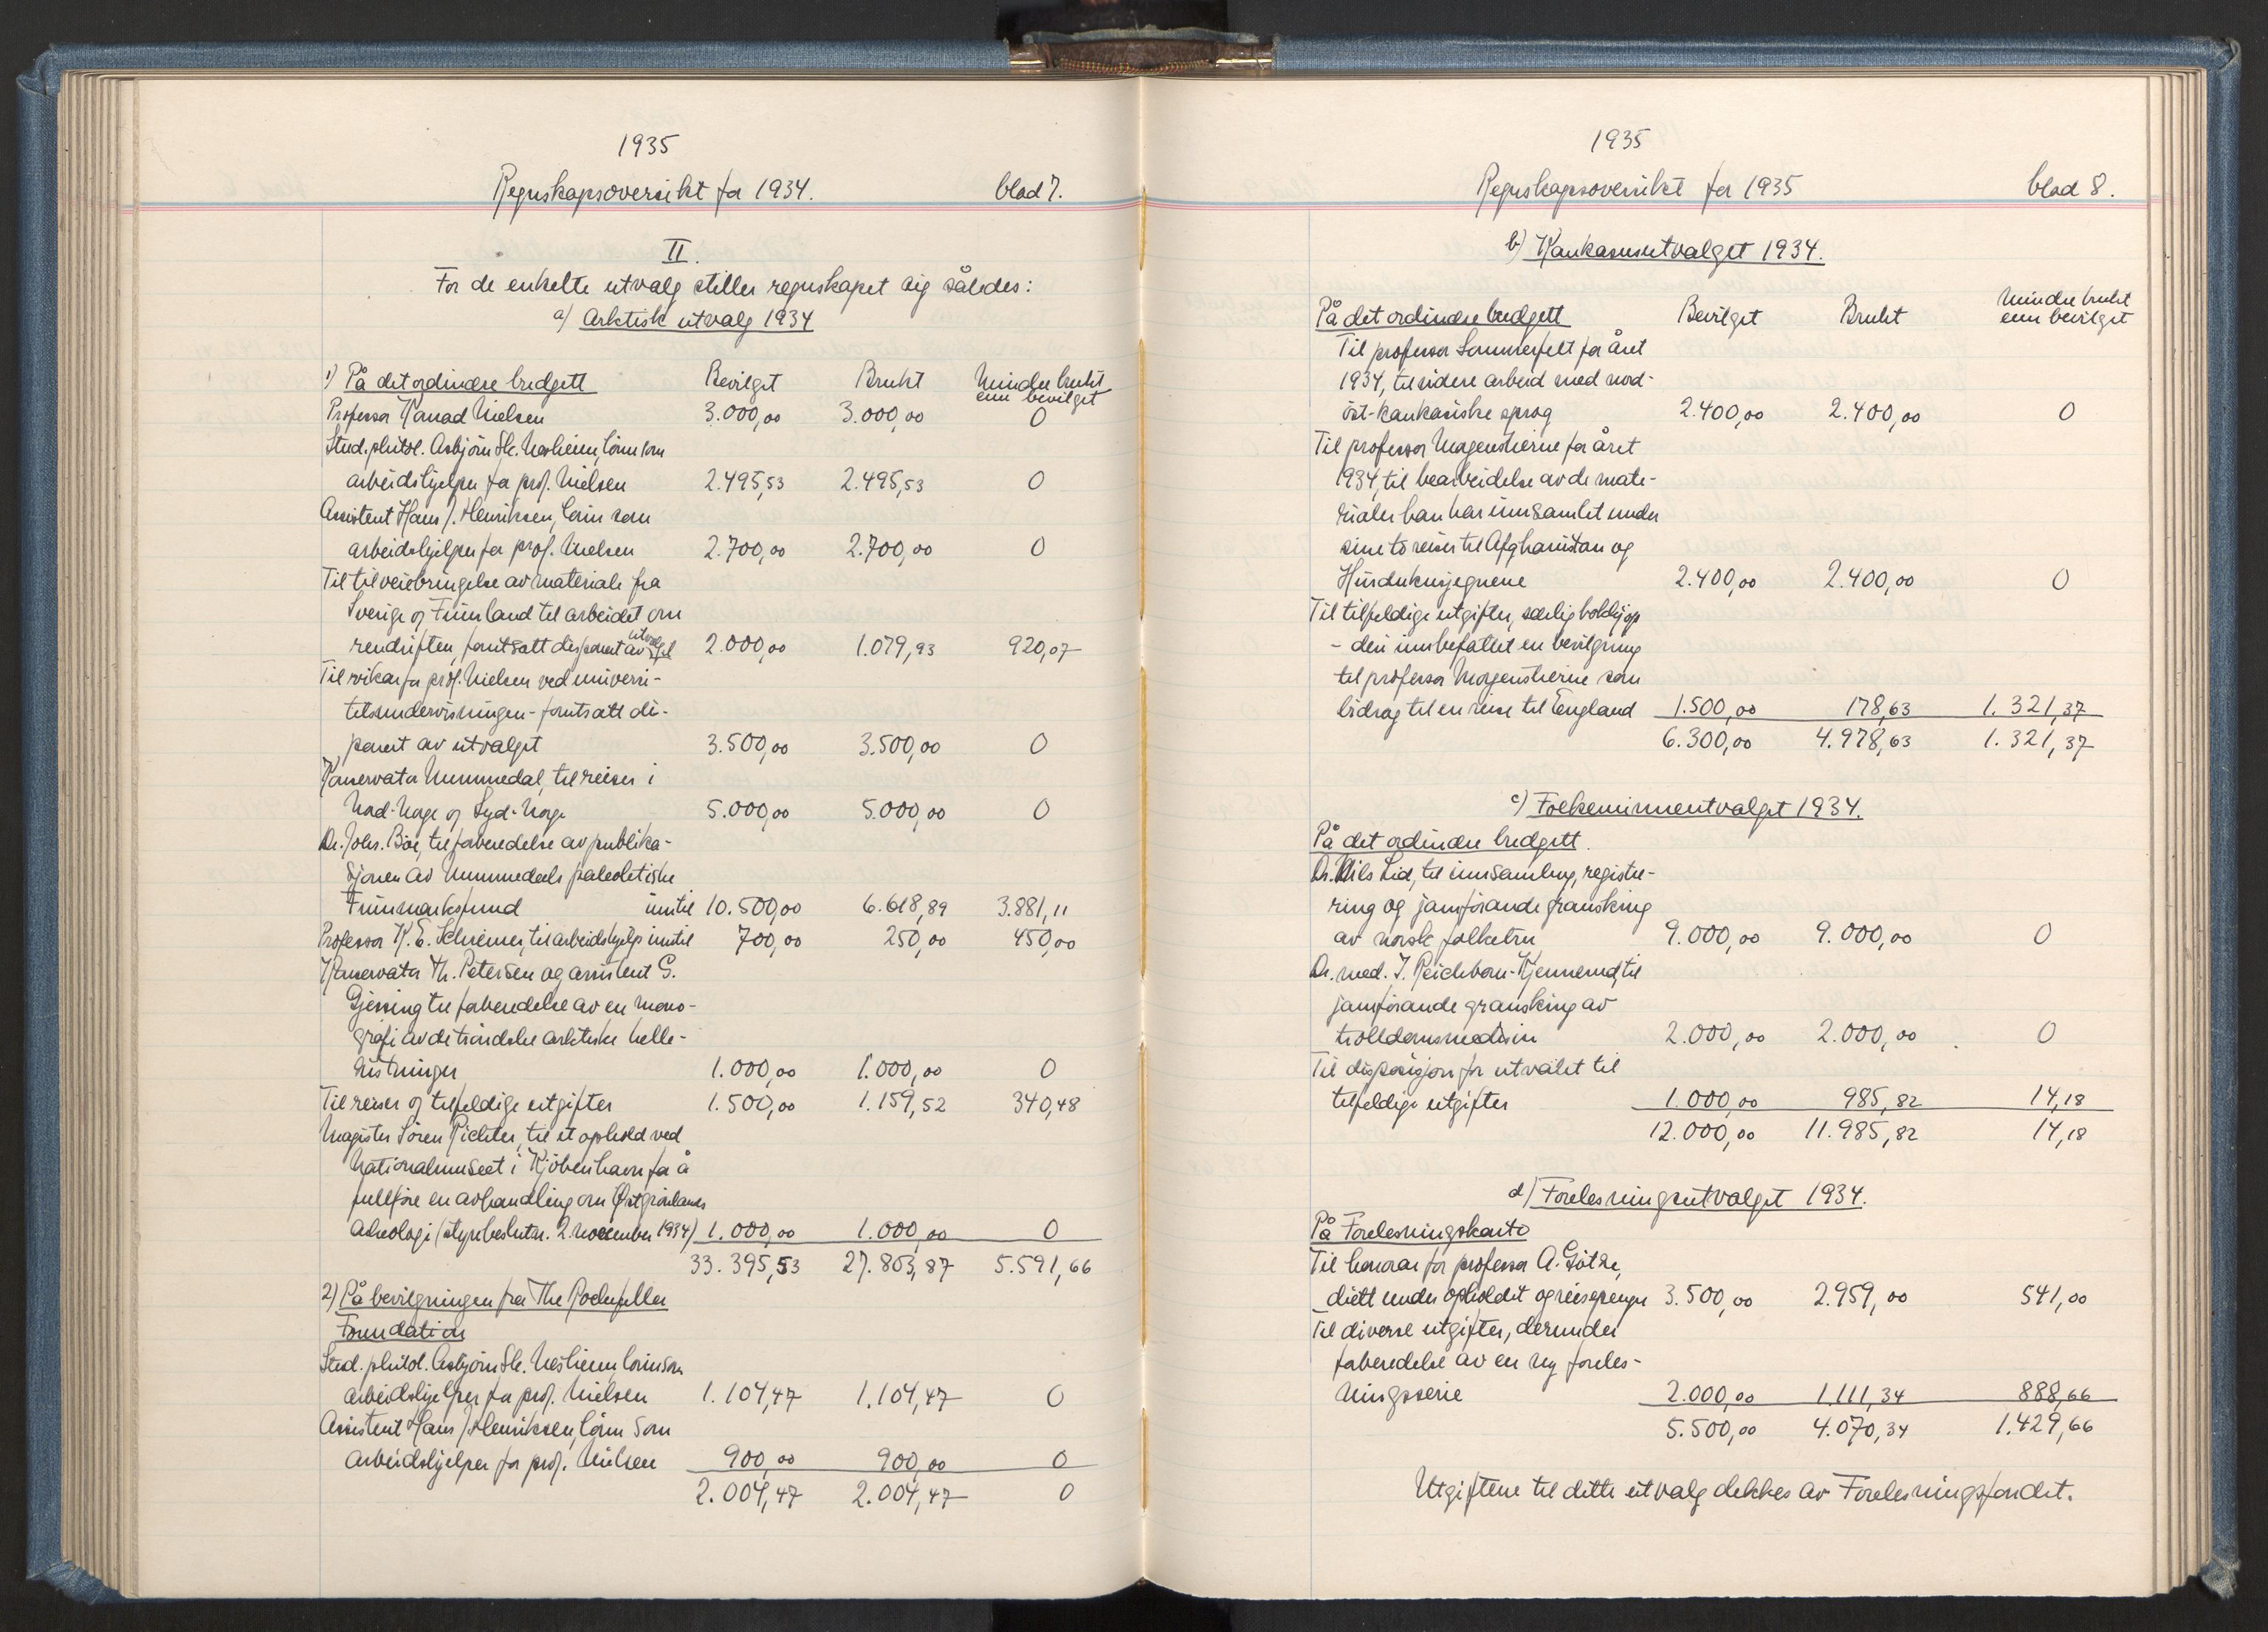 1935
Regnskapsoversikt for 1934. blad 7.
II.
For de enkelte utvalg stiller regnskapet sig således:
a) Arktisk utvalg 1934
1) På det ordinære budgett Bevilget Brukt Mindre brukt
enn bevilget
Professor Konrad Nielsen 3.000,00 3.000,00 0
Stud. philol. Asbjörn Sk. Nesheim, lönn som
arbeidshjelper for prof. Nielsen 2.495,53 2.495,53 0
Assistent Hans J. Henriksen, lönn som
arbeidshjelper for prof. Nielsen 2.700,00 2.700,00 0
Til tilveiebringelse av materiale fra
Sverige og Finnland til arbeidet om
rendriften, fortsatt disponert av utvalget 2.000,00 1.079,93 920,07
Til vikar for prof. Nielsen ved universi-
tetsundervisningen - fortsatt dis-
ponert av utvalget 3.500,00 3.500,00 0
Konservator Nummedal, til reiser i
Nord-Norge og Syd-Norge 5.000,00 5.000,00 0
Dr. Johs. Böe, til forberedelse av publika-
sjonen av Nummedals paleolitiske
Finnmarksfund inntil 10.500,00 6.618,89 3.881,11
Professor K. E. Schreiner, til arbeidshjelp inntil 700,00 250,00 450,00
Konservator Th. Petersen og assistent G.
Gjessing til forberedelse av en mono-
grafi av de tröndske arktiske helle-
ristninger 1.000,00 1.000,00 0
Til reiser og tilfeldige utgifter 1.500,00 1.159,52 340,48
Magister Sören Richter, til et ophold ved
Nationalmuseet i Kjöbenhavn for å
fullföre en avhandling om Östgrönlands
arkeologi (styrebeslutn. 2 november 1934) 1.000,00 1.000,00 0
33.395,53 27.803,87 5.591,66
2) På bevilgningen fra The Rockefeller
Foundation
Stud. philol. Asbjörn Sk. Nesheim, lönn som
arbeidshjelper for prof. Nielsen 1.104,47 1.104,47 0
Assistent Hans J. Henriksen, lönn som
arbeidshjelper for prof. Nielsen 900,00 900,00 0
2.004,47 2.004,47 0
1935
Regnskapsoversikt for 1935 blad 8.
b) Kaukasusutvalget 1934.
På det ordinære budgett Bevilget Brukt Mindre brukt
enn bevilget
Til professor Sommerfelt for året
1934, til videre arbeid med nord-
öst-kaukasiske sprog 2.400,00 2.400,00 0
Til professor Morgenstierne for året
1934, til bearbeidelse av de mate-
rialer han har innsamlet under
sine to reiser til Afghanistan og
Hindukusjegnene 2.400,00 2.400,00 0
Til tilfeldige utgifter, særlig bokkjöp
- deri innbefattet en bevilgning
til professor Morgenstierne som
bidrag til en reise til England 1.500,00 178,63 1.321,37
6.300,00 4.978,63 1.321,37
c) Folkeminneutvalget 1934.
På det ordinære budgett.
Dr. Nils Lid, til innsamling, registre-
ring og jamförande gransking
av norsk folketru 9.000,00 9.000,00 0
Dr. med. I. Reichborn-Kjennerud, til
jamförande gransking av
trolldomsmedisin 2.000,00 2.000,00 0
Til disposisjon for utvalet til
tilfeldige utgifter 1.000,00 985,82 14,18
12.000,00 11.985,82 14,18
d) Forelesningsutvalget 1934.
På Forelesningskonto
Til honorar for professor A. Götze,
diett under opholdet og reisepenger 3.500,00 2.959,00 541,00
Til diverse utgifter, derunder
forberedelse av en ny foreles-
ningsserie 2.000,00 1.111,34 888,66
5.500,00 4.070,34 1.429,66
Utgiftene til dette utvalg dekkes av Forelesningsfondet.